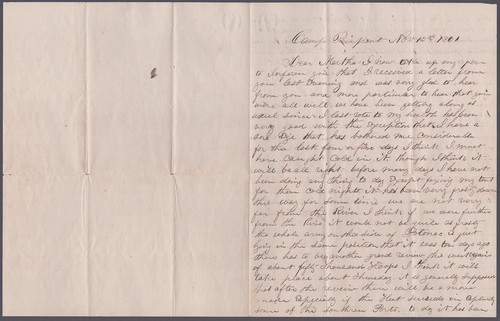 Camp Nov 12th 1861
Dear Martha I now take up my pen
to inform you that I received a letter from
you last Evening and was very glad to hear
from you and more particular to hear that you
were all well we have been getting along as
usual since I last rote to you my health has been
very good with the exception that I have a
sore Eye that has bothered me considerable
for the last four or five days I think I must
have Caught Cold in it though I think it
will be all right before many days I have not
been doing any thing to day Except fixing my tent
for these cold nights it has been very frosty down
this way for some time we are not very
far from the River I think if we were further
from the River it would not be quite as frosty
the whole army on this side of Potomac is just
in the same position that it was ten days ago
there has to be another grand review the
of about fifty thousand troops I think it will
take place about Thursday it is generally supposed
that after the review there will be a move
made Especially if the Fleet succeeds in
some of the Southern Ports to day it has been